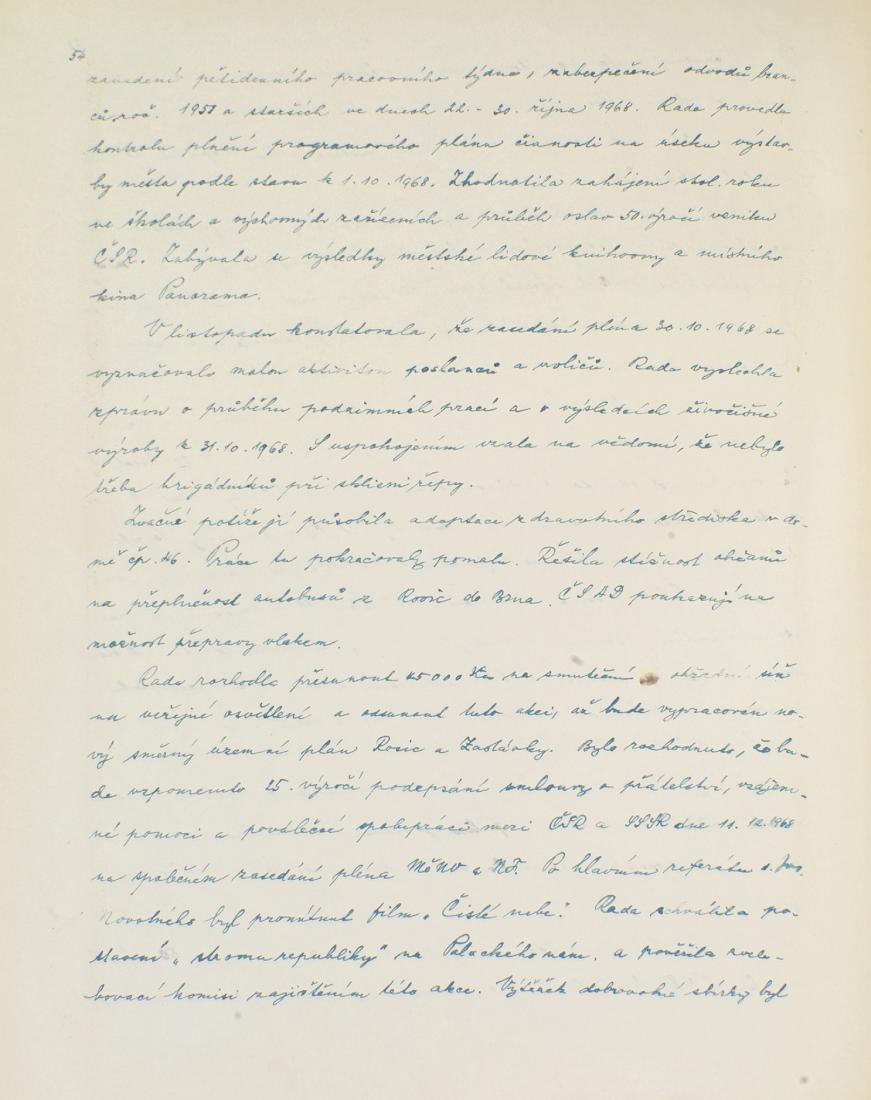 54
zavedení pětidenního pracovního týdne, zabezpečení odvodů bran-
ců roč. 1951 a starších ve dnech 22. - 30. října 1968. Rada provedla
kontrolu plnění programového plánu činnosti na úseku výstav-
by města podle stavu k 1.10.1968. Zhodnotila zahájení škol. roku
ve školách a výchovných zařízeních a průběh oslav 50. výročí vzniku
ČSR. Zabývala se výsledky městské lidové knihovny a místního
kina Panorama.
V listopadu konstatovala, že zasedání pléna 30.10.1968 se
vyznačovalo malou aktivitou poslanců a voličů. Rada vyslechla
zprávu o průběhu podzimních prací a o výsledcích živočišné
výroby k 31.10.1968. S uspokojením vzala na vědomí, že nebylo
třeba brigádníků při sklizni řepy.
Značné potíže jí působila adaptace zdravotního střediska v do-
mě čp. 46. Práce tu pokračovaly pomalu. Řešila stížnost občanů
na přeplněnost autobusů z Rosic do Brna. ČSAD poukazují na
možnost přepravy vlakem.
Rada rozhodla přesunout 45000 Kčs na smuteční obřadní síň
na veřejné osvětlení a odsunout tuto akci, až bude vypracován no-
vý směrný územní plán Rosic a Zastávky. Bylo rozhodnuto, že bu-
de vzpomenuto 25. výročí podepsání smlouvy o přátelství, vzájem-
né pomoci a poválečné spolupráci mezi ČSR a SSSR dne 11.12.1968
na společném zasedání pléna MěNV a NF. Po hlavním referátu s.
Novotného byl promítnut film „Čisté nebe". Rada schválila po-
stavení „stromu republiky" na Palackého nám. a pověřila zvele-
bovací komisi zajištěním této akce. Výtěžek dobrovolné sbírky byl